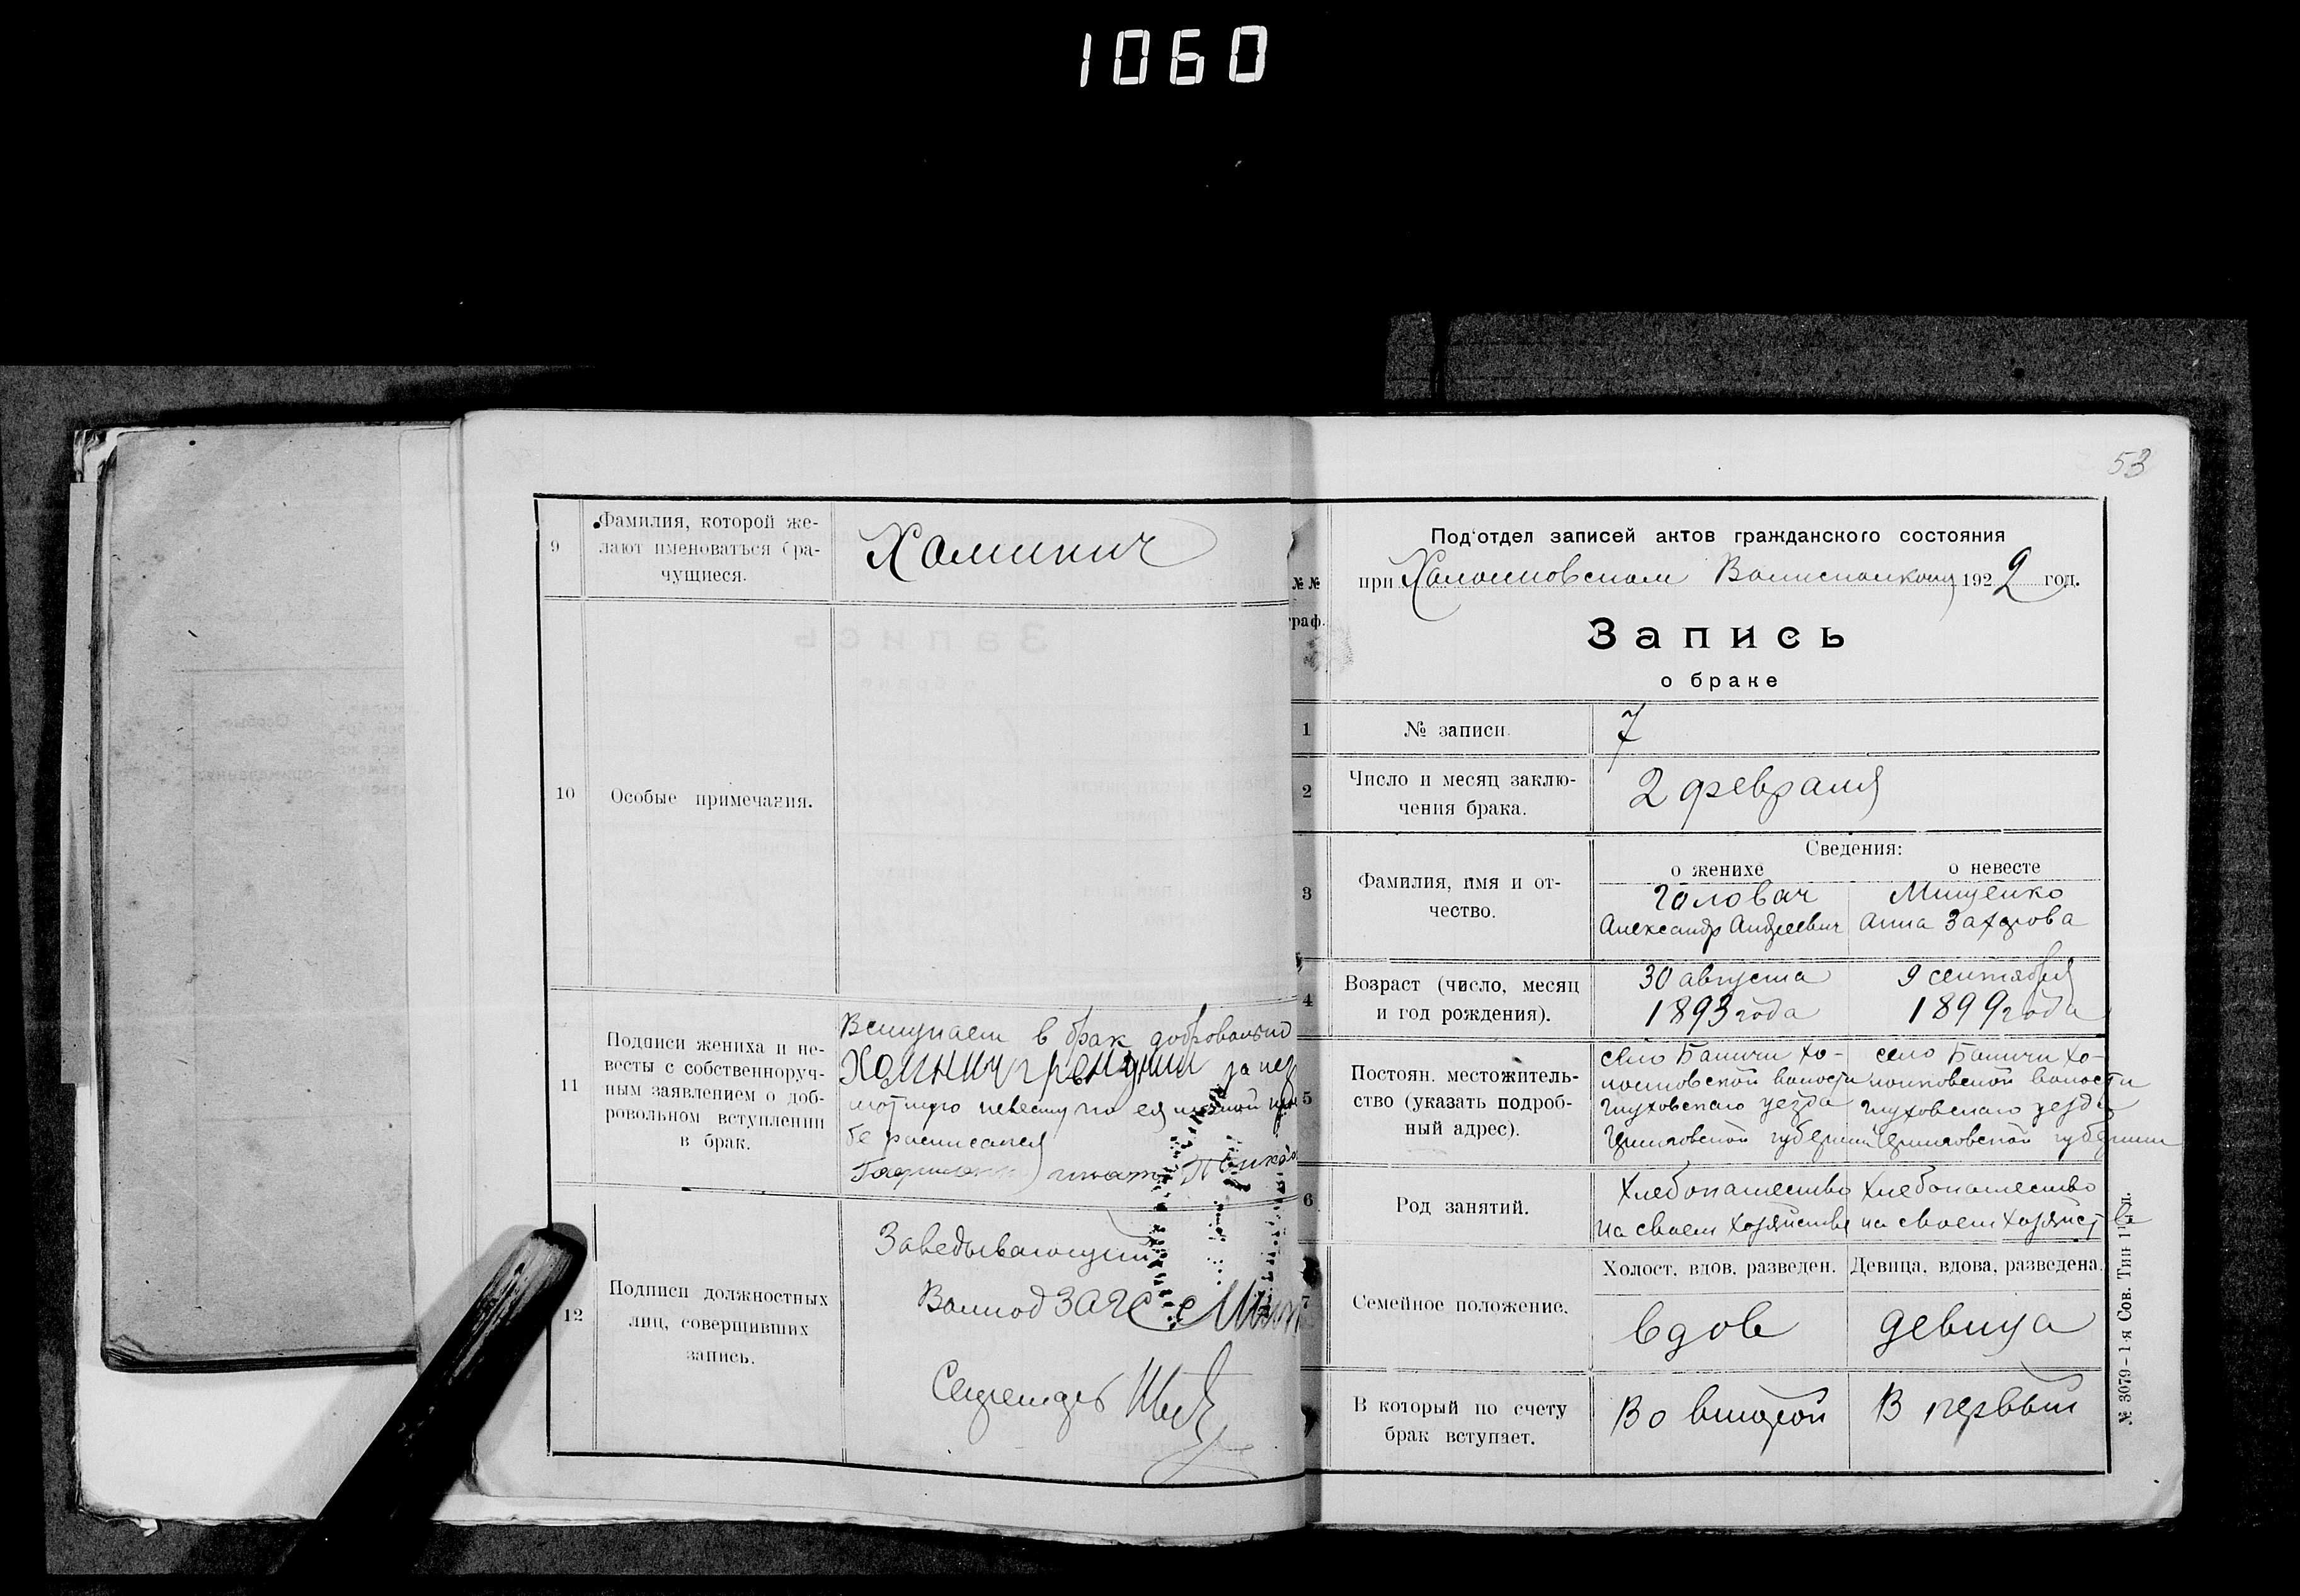 1060
53
9
Фамилия, которой же-
лают именоваться бра-
чущиеся.
Хоминич
10
Особые примечания.
11
Подписи жениха и не-
весты с собственноруч-
ным заявлением о доб-
ровольном вступлении
в брак.
Вступаем в брак добровольно
Хоминич за нег
мотную невесту по ея личной прос
бе расписался
12
Подписи должностных
лиц, совершивших
запись.
Заведывающий
Волпод ЗАГС
Секретарь
№№
граф.
Под'отдел записей актов гражданского состояния
при Волисполкому 1922 год.
Запись
о браке
1
№ записи.
7
2
Число и месяц заклю-
чения брака.
2 февраля
3
Фамилия, имя и от-
чество.
Сведения:
о женихе
о невесте
Головач
Александр Андреевич
Мищенко
Анна Захарова
4
Возраст (число, месяц
и год рождения).
30 августа
1893 года
9 сентября
1899 года
5
Постоян. местожитель-
ство (указать подроб-
ный адрес).
село Баничи Хо-
волости
Глуховскаго уезда
Черниговской губернии
село Баничи Хо-
волости
Глуховскаго уезда
Черниговской губернии
6
Род занятий.
Хлебопашество
на своем хозяйстве
Хлебопашество
на своем хозяйстве
7
Семейное положение.
Холост, вдов, разведен.
Девица, вдова, разведена.
вдов
девица
В который по счету
брак вступает.
Во второй
В первый
№ 3079-1-я Сов. Тип